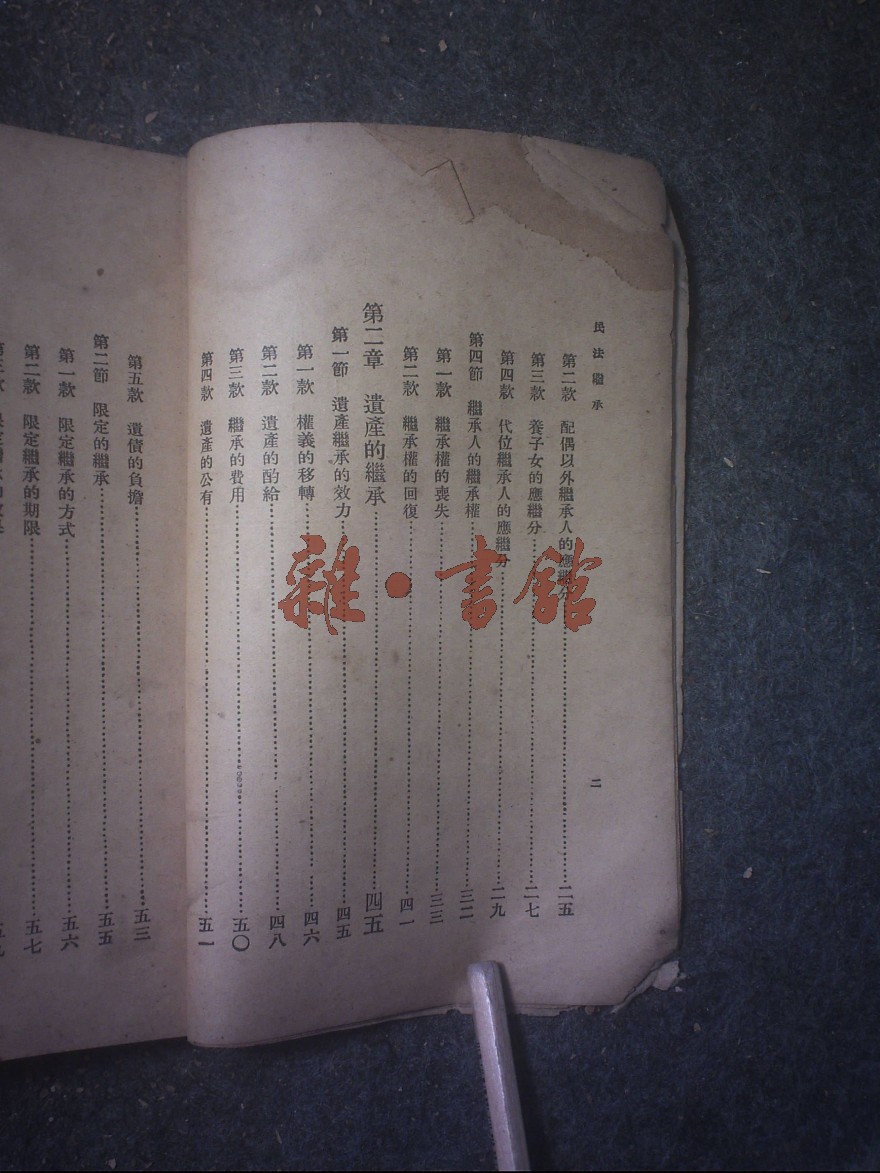 民法繼承
二
第二款 配偶以外繼承人的應繼分……二五
第三款 養子女的應繼分……二七
第四款 代位繼承人的應繼分……二九
第四節 繼承人的繼承權……三二
第一款 繼承權的喪失……三三
第二款 繼承權的回復……四一
第二章 遺產的繼承……四五
第一節 遺產繼承的效力……四五
第一款 權義的移轉……四六
第二款 遺產的酌給……四八
第三款 繼承的費用……五〇
第四款 遺產的公有……五一
第五款 遺債的負擔……五三
第二節 限定的繼承……五五
第一款 限定繼承的方式……五六
第二款 限定繼承的期限……五七
雜·書館